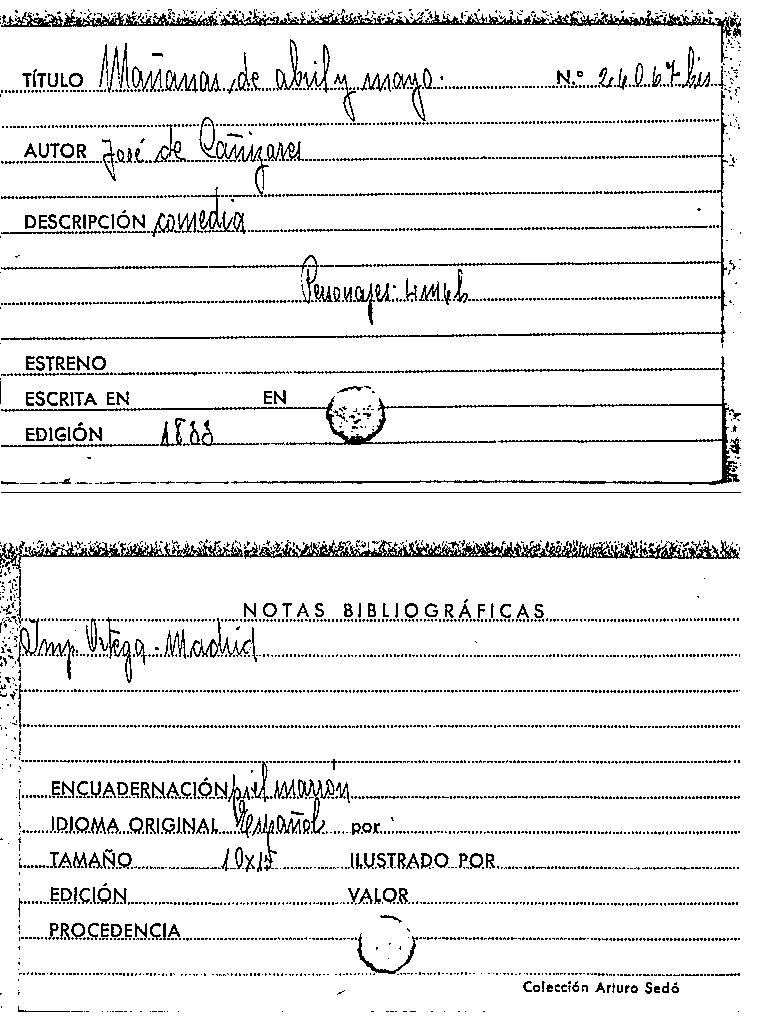 TÍTULO Mañanas de abril y mayo. N.º 24067 bis
AUTOR José de Cañizares
DESCRIPCIÓN comedia
Personajes: 4m4h
ESTRENO
ESCRITA EN EN
EDICIÓN 1833
NOTAS BIBLIOGRÁFICAS
Imp. Ortega - Madrid
ENCUADERNACIÓN piel marron
IDIOMA ORIGINAL Español por
TAMAÑO 10x15 ILUSTRADO POR
EDICIÓN VALOR
PROCEDENCIA
Colección Arturo Sedó